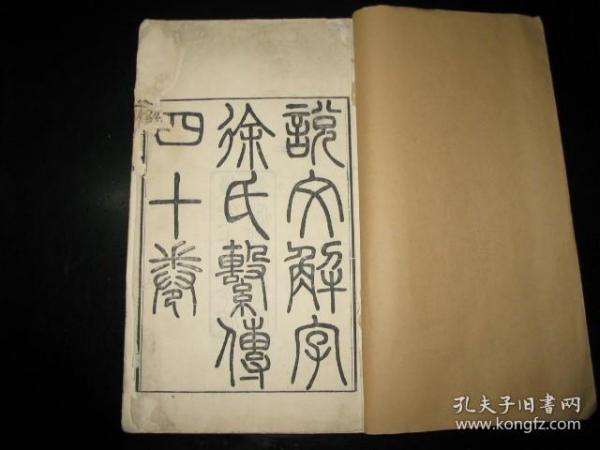 說文解字
徐氏繫傳
四十卷
孔夫子旧書网
www.kongfz.com